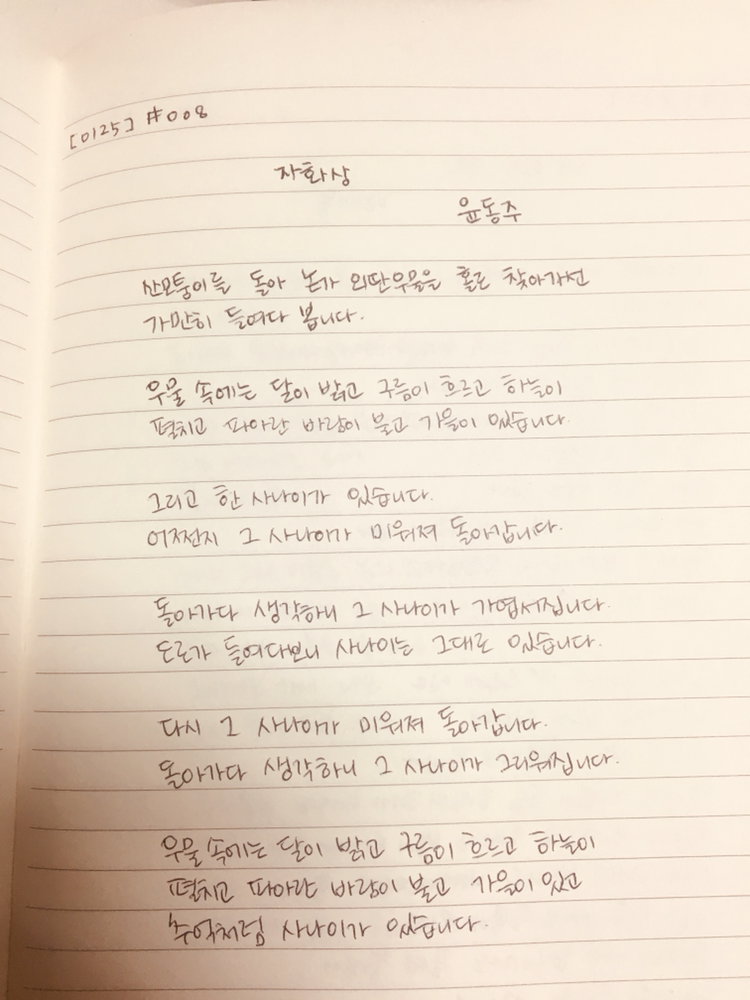 [0125] #008
자화상
윤동주
산모퉁이를 돌아 논가 외딴우물을 홀로 찾아가선
가만히 들여다 봅니다.
우물 속에는 달이 밝고 구름이 흐르고 하늘이
펼치고 파아란 바람이 불고 가을이 있습니다.
그리고 한 사나이가 있습니다.
어쩐지 그 사나이가 미워져 돌아갑니다.
돌아가다 생각하니 그 사나이가 가엽서집니다.
도로가 들여다보니 사나이는 그대로 있습니다.
다시 그 사나이가 미워져 돌아갑니다.
돌아가다 생각하니 그 사나이가 그리워집니다.
우물 속에는 달이 밝고 구름이 흐르고 하늘이
펼치고 파아란 바람이 불고 가을이 있고
추억처럼 사나이가 있습니다.